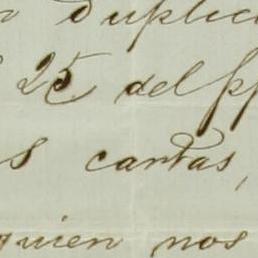 duplic
25 del pp
s cartas,
quien nos